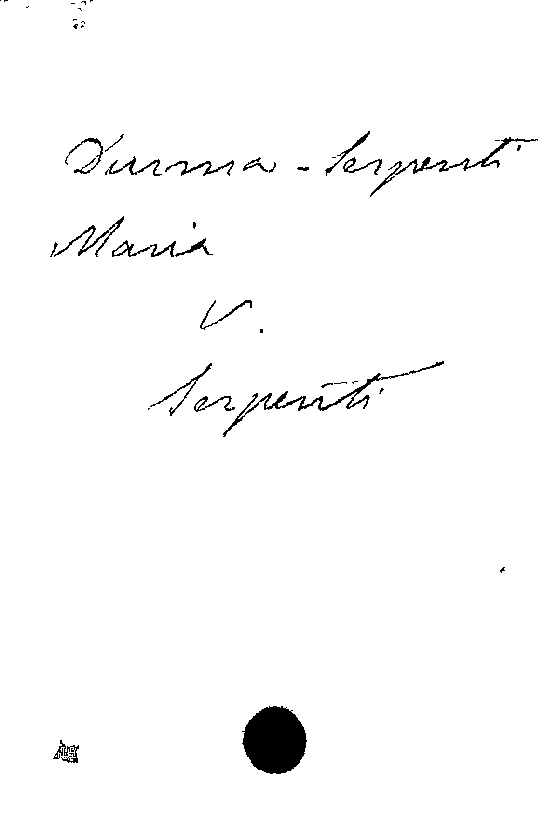 Durma - Serpenti
Maria
V.
Serpenti